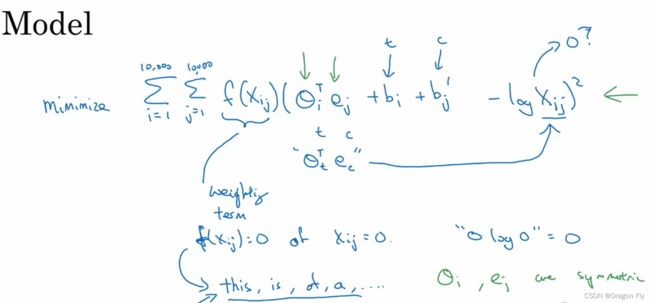 Model
t c 0?
minimize 10,000 Σ i=1 10,000 Σ j=1 f(Xij) (θiᵀ ej + bi + bj' - log Xij)² ←
t c
"θtᵀ ec"
weighting
term
f(Xij)=0 at Xij=0. "0 log 0" = 0
this, is, of, a, .... θi, ej are symmetric
CSDN @Dragon Fly